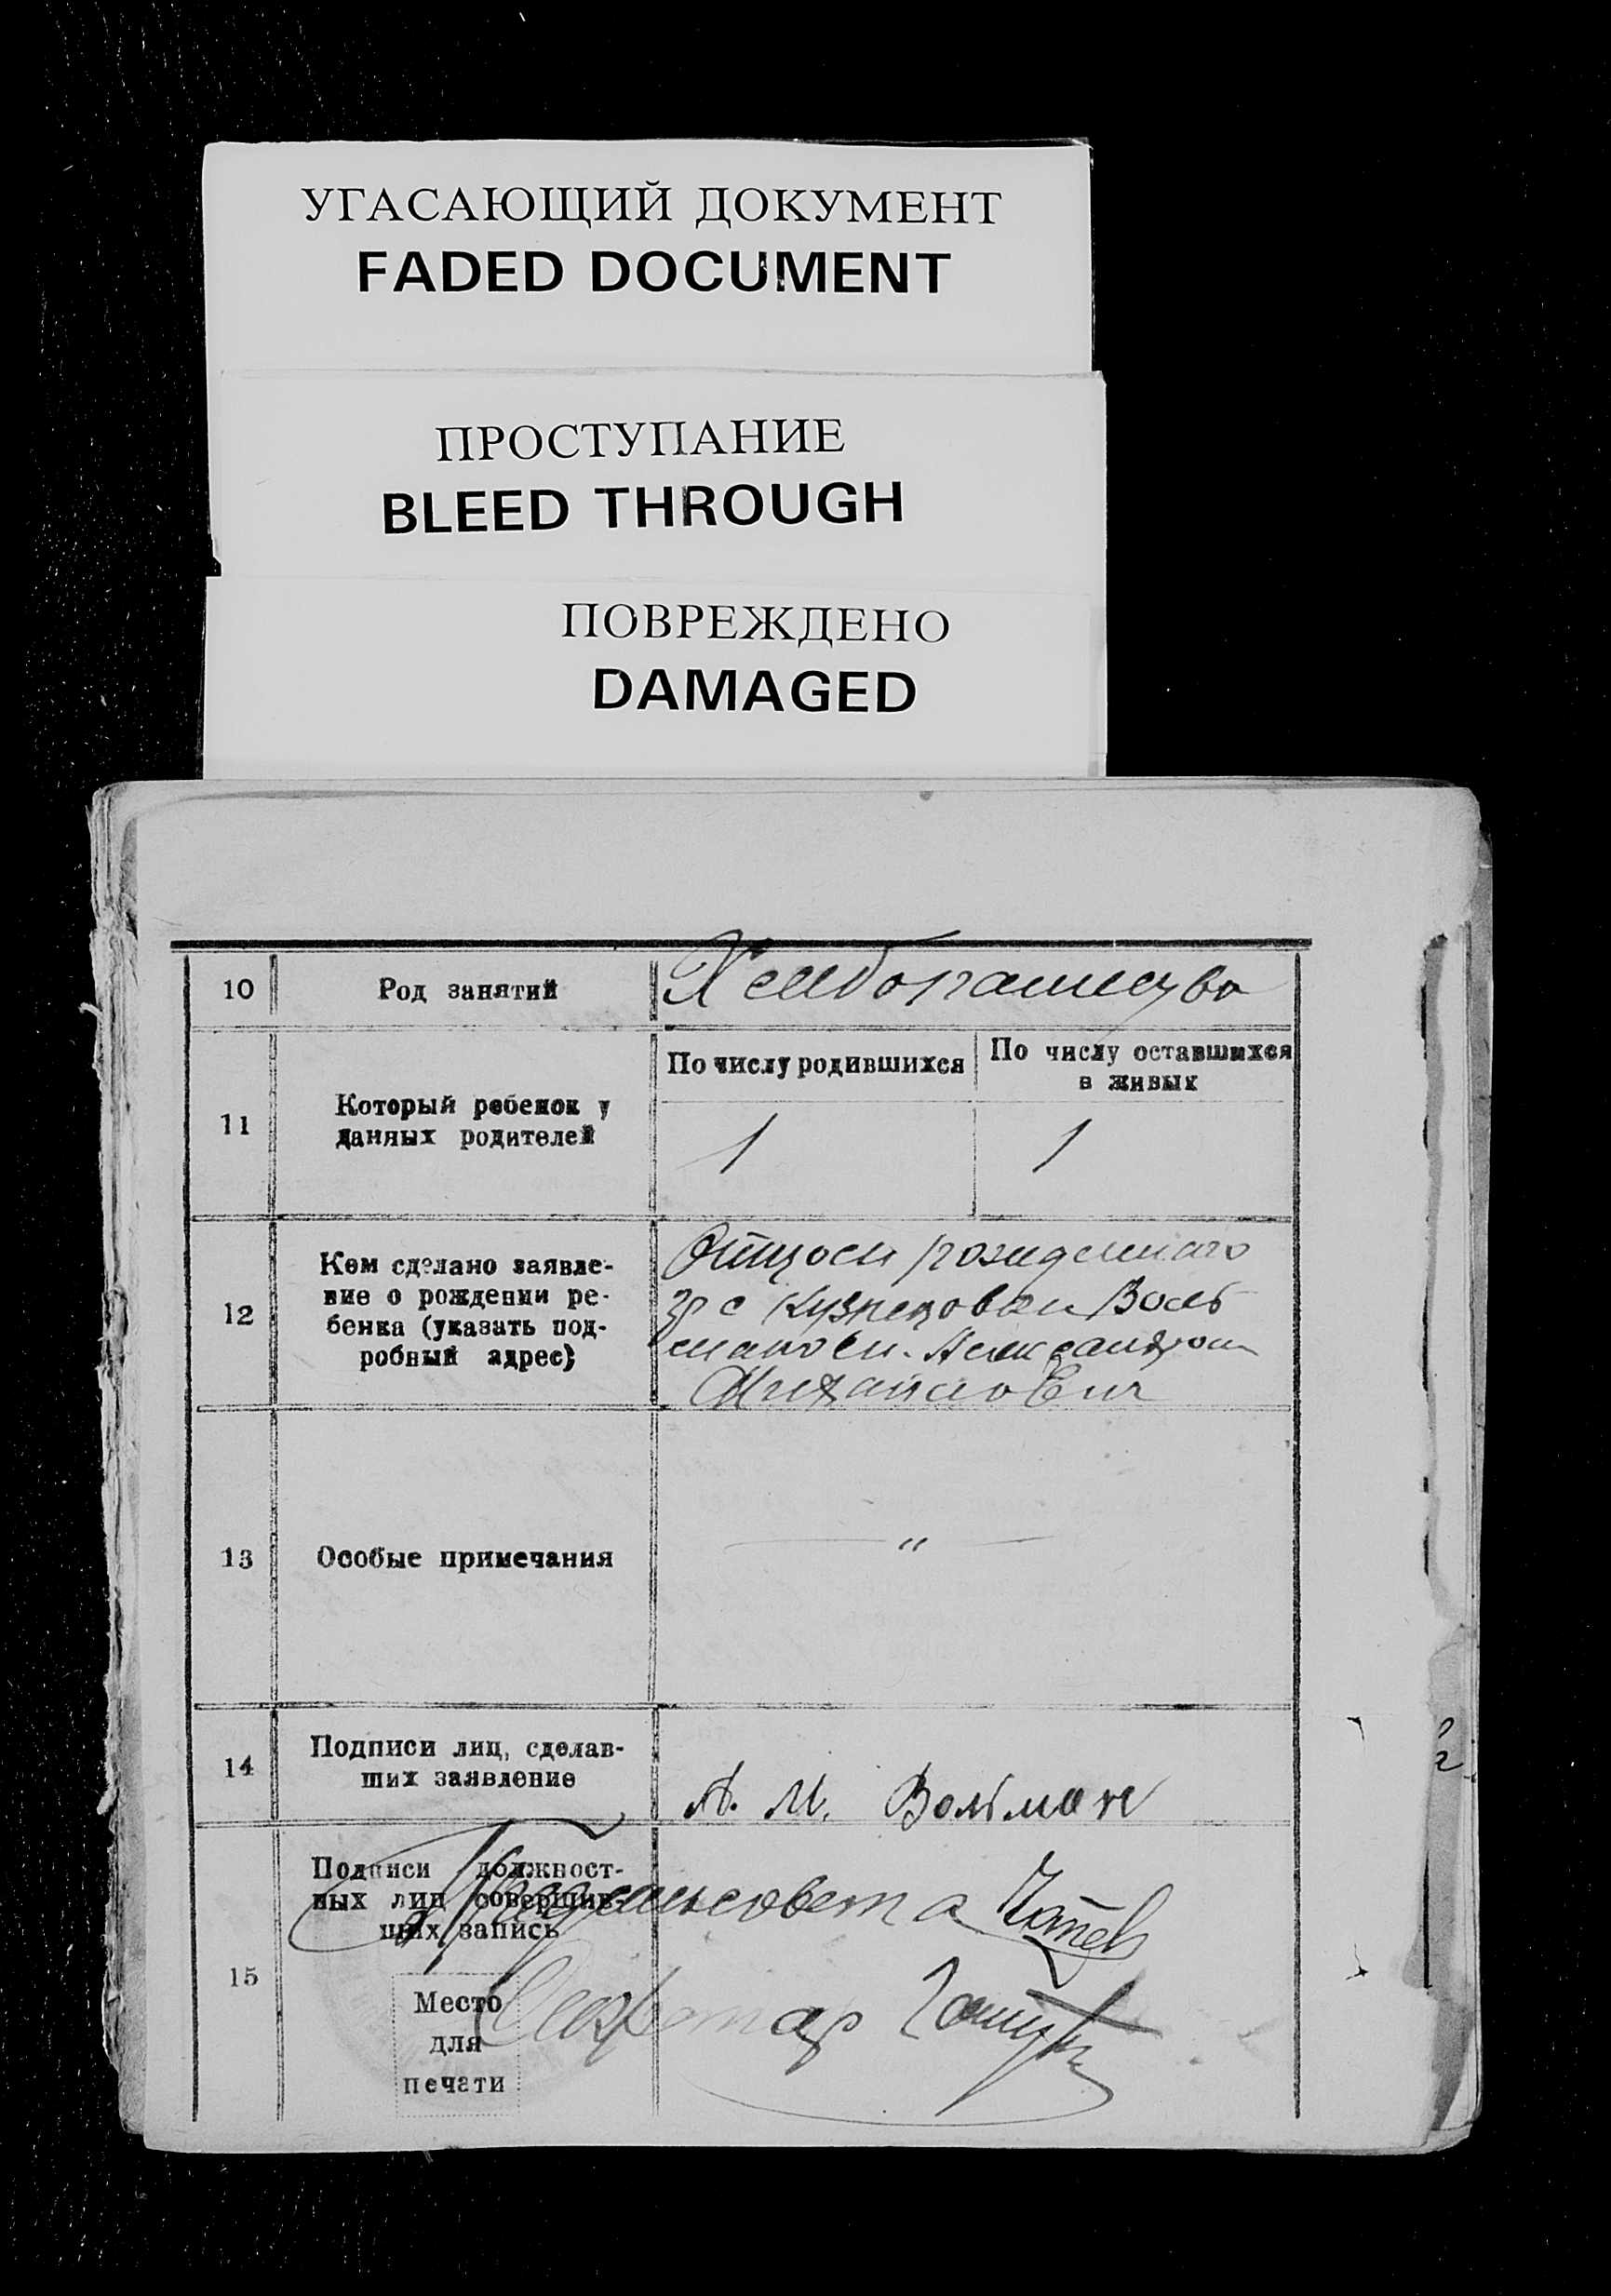 УГАСАЮЩИЙ ДОКУМЕНТ
FADED DOCUMENT
ПРОСТУПАНИЕ
BLEED THROUGH
ПОВРЕЖДЕНО
DAMAGED
10
Род занятий
Хлебопашество
11
Который ребенок у
данных родителей
По числу родившихся
По числу оставшихся
в живых
1
1
12
Кем сделано заявле-
ние о рождении ре-
бенка (указать под-
робный адрес)
Отцом рожденного
с Кузнецовки Воль
маном. Александром
Михайлович
13
Особые примечания
— " —
14
Подписи лиц, сделав-
ших заявление
А. М. Вольман
15
Подписи должност-
ных лиц совершив-
ших запись
Место
для
печати
Секретар